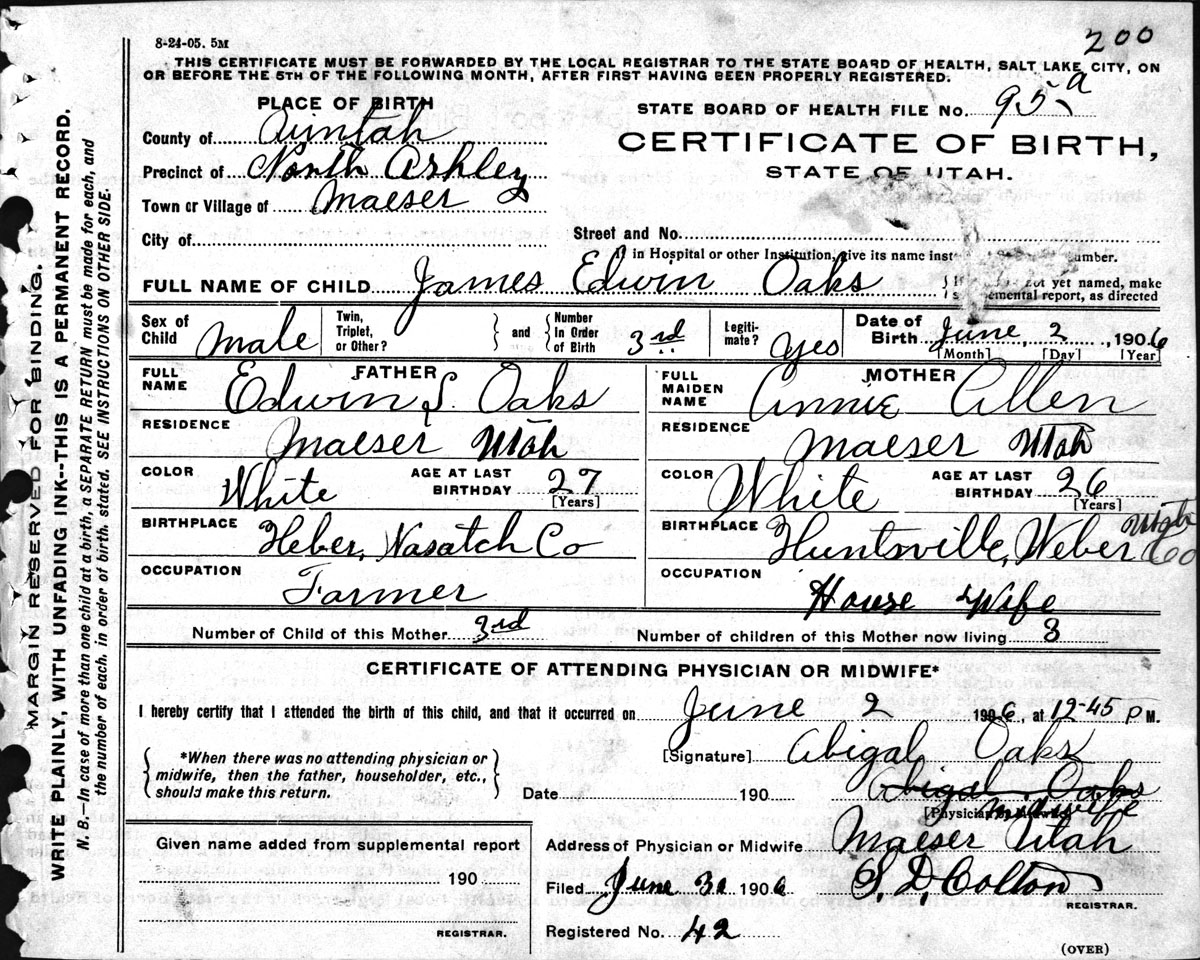 200
8-24-05. 5M
THIS CERTIFICATE MUST BE FORWARDED BY THE LOCAL REGISTRAR TO THE STATE BOARD OF HEALTH, SALT LAKE CITY, ON
OR BEFORE THE 5TH OF THE FOLLOWING MONTH, AFTER FIRST HAVING BEEN PROPERLY REGISTERED.
PLACE OF BIRTH
STATE BOARD OF HEALTH FILE No. 95-a
County of Uintah
CERTIFICATE OF BIRTH,
Precinct of North Ashley
STATE OF UTAH.
Town or Village of Maeser
City of
Street and No.
If in Hospital or other Institution, give its name number.
FULL NAME OF CHILD James Edwin Oaks
not yet named, make
report, as directed
Sex of Child Male
Twin, Triplet, or Other?
and
Number In Order of Birth 3rd
Legiti-mate? yes
Date of Birth June 2, 1906
[Month] [Day] [Year]
FATHER
FULL NAME Edwin S. Oaks
RESIDENCE Maeser Utah
COLOR White
AGE AT LAST BIRTHDAY 27
[Years]
BIRTHPLACE Heber, Wasatch Co
OCCUPATION Farmer
MOTHER
FULL MAIDEN NAME Annie Allen
RESIDENCE Maeser Utah
COLOR White
AGE AT LAST BIRTHDAY 26
[Years]
BIRTHPLACE Huntsville, Weber Co Utah
OCCUPATION House Wife
Number of Child of this Mother 3rd
Number of children of this Mother now living 3
CERTIFICATE OF ATTENDING PHYSICIAN OR MIDWIFE*
I hereby certify that I attended the birth of this child, and that it occurred on June 2 1906, at 12-45 P M.
*When there was no attending physician or
midwife, then the father, householder, etc.,
should make this return.
[Signature] Abigal Oaks
Date 190
Abigal Oaks
[Physician or Midwife]
midwife
Address of Physician or Midwife Maeser Utah
Given name added from supplemental report
190
REGISTRAR.
Filed June 30 1906
S D Colton
REGISTRAR.
Registered No. 42
(OVER)
MARGIN RESERVED FOR BINDING.
WRITE PLAINLY, WITH UNFADING INK--THIS IS A PERMANENT RECORD.
N. B.--In case of more than one child at a birth, a SEPARATE RETURN must be made for each, and
the number of each, in order of birth, stated. SEE INSTRUCTIONS ON OTHER SIDE.